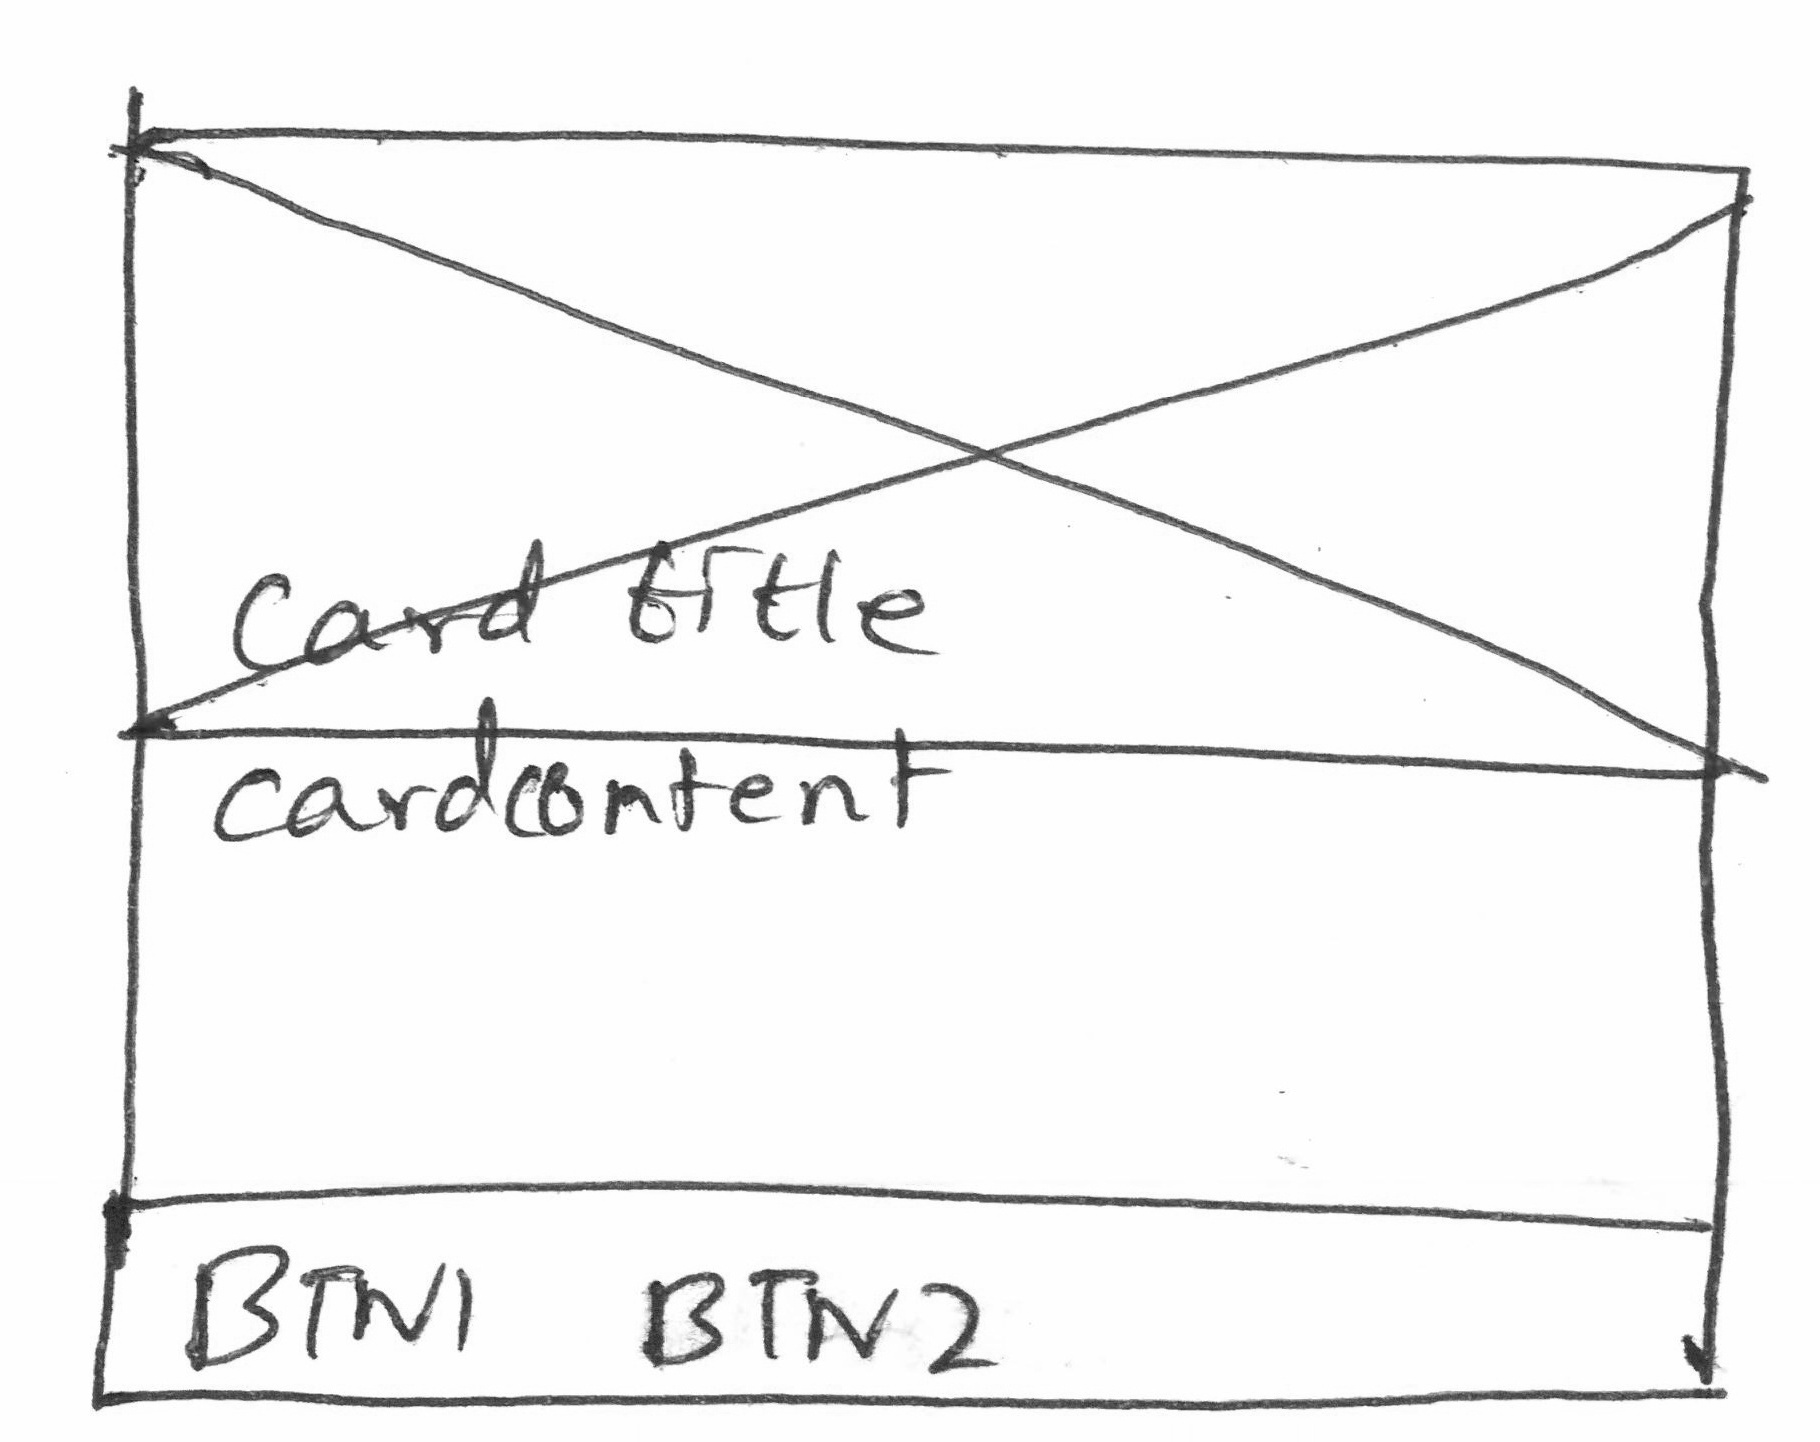 Card title
cardcontent
BTN1 BTN2